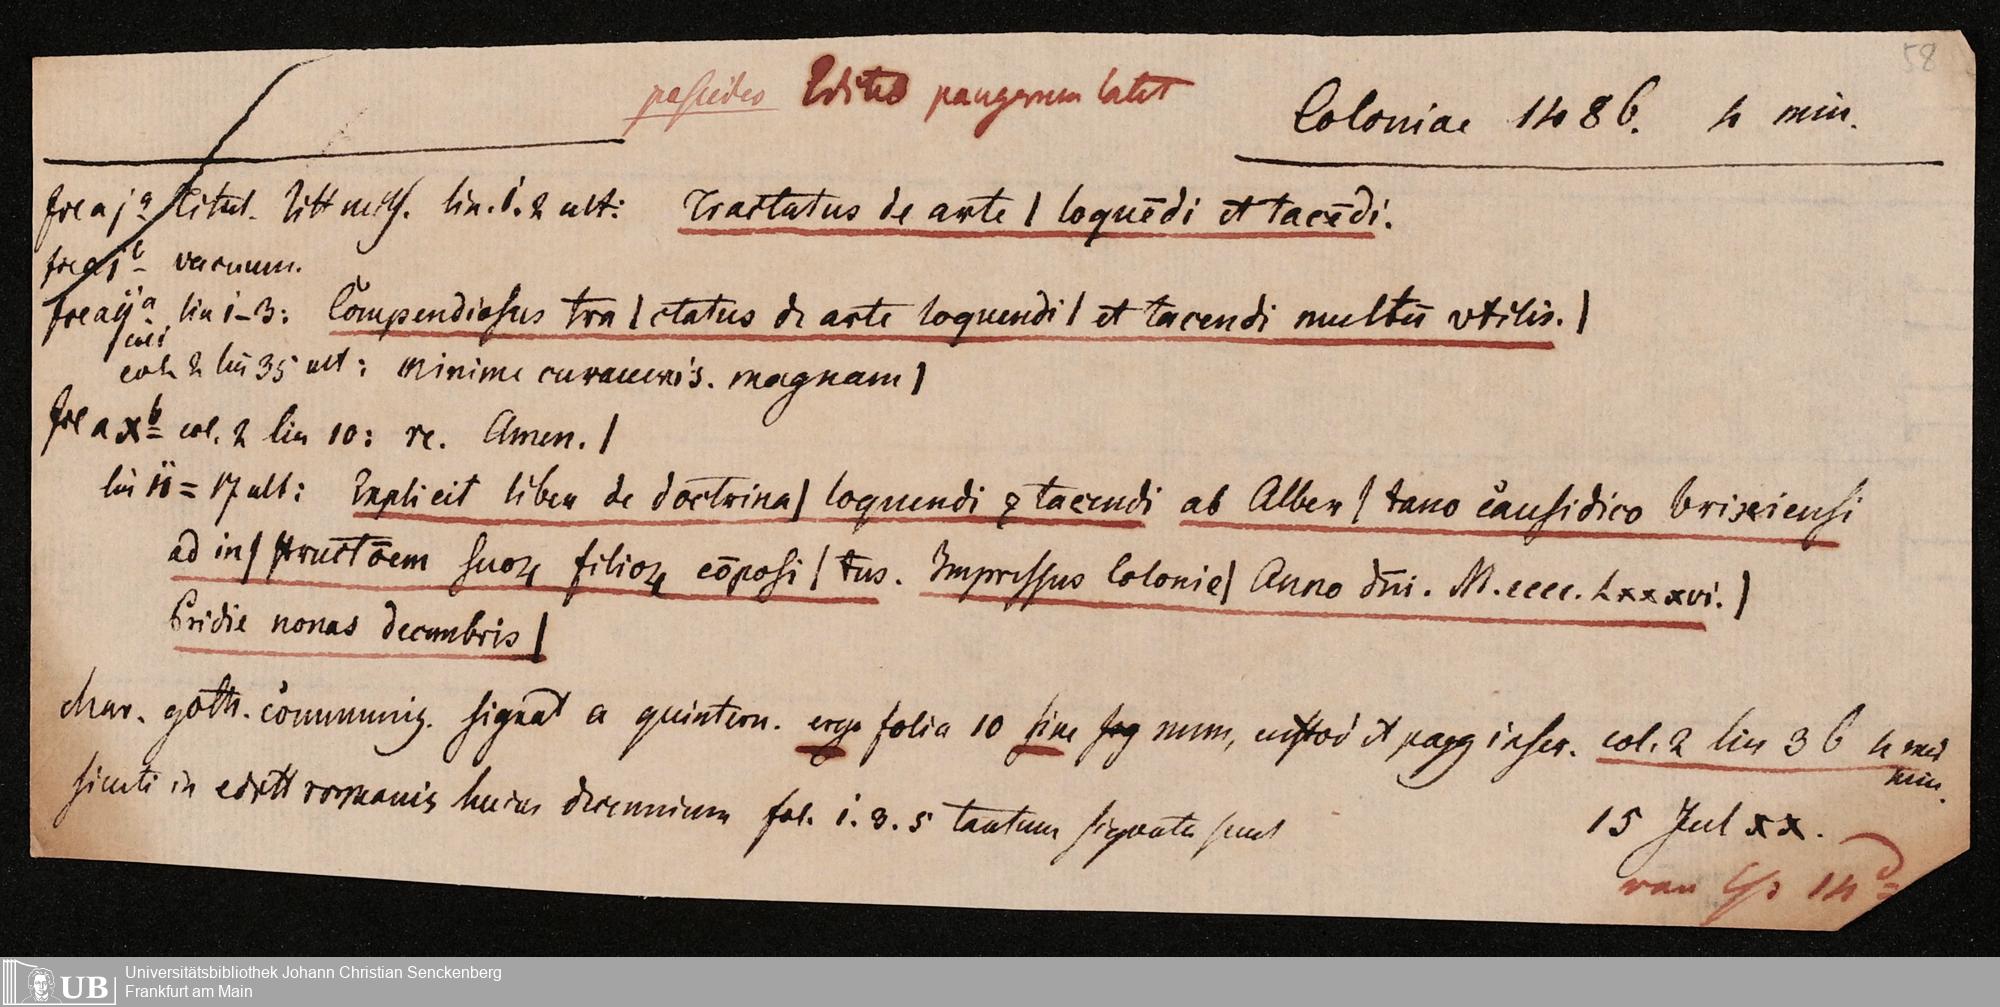 58
possideo Editio paugerum latet
Coloniae 1486. 4 min.
fre a jª titul. litt miss. lin. i. 2 ult: Tractatus de arte | loquēdi et tacēdi.
fre a jᵇ vacuum.
fre a ijª lin i-3: Cōmpendiosus tra | ctatus de arte loquendi | et tacendi multū vtilis. |
col. 2 lin 35 ult: minime curaueris. magnam |
fre a xᵇ col. 2 lin 10: re. Amen. |
lin ii = 17 ult: Explicit liber de doctrina | loquendi ⁊ tacendi ab Alber | tano causidico brixiensi
ad in | structōem suoꝝ filioꝝ cōposi | tus. Impressus Colonie | Anno dn̄i. M.cccc.Lxxxvi. |
Pridie nonas decembris |
char. goth. communis. signat a quintern. ergo folia 10 sine num, custod et pagg inscr. col. 2 lin 36 4 mai
min.
sicuti in editt romanis huius decennium fol. i. 3. 5 tantum signata sunt
15 Jul xx.
van 14
Universitätsbibliothek Johann Christian Senckenberg
UB Frankfurt am Main